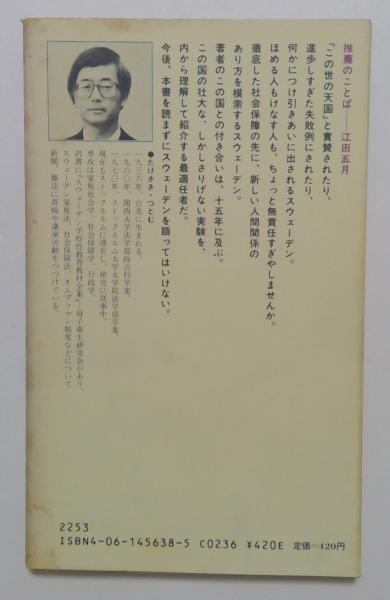 推薦のことば――江田五月
「この世の天国」と賞賛されたり、
進歩しすぎた失敗例にされたり、
何かにつけ引きあいに出されるスウェーデン。
ほめる人もけなす人も、ちょっと無責任すぎやしませんか。
徹底した社会保障の先に、新しい人間関係の
あり方を模索するスウェーデン。
著者のこの国との付き合いは、十五年に及ぶ。
この国の壮大な、しかしさりげない実験を、
内から理解して紹介する最適任者だ。
今後、本書を読まずにスウェーデンを語ってはいけない。
●たけさき・つとむ
一九三六年、台北に生まれる。
一九六〇年、関西大学法学部政治科卒業。
一九七〇年、ストックホルム大学大学院法学部卒業。
現在もストックホルムに滞在し、研究に従事中。
専攻は家族社会学、社会保障学、行政学。
訳書に、『スウェーデン学校性教育教材全集』母子衛生研究会があり、
スウェーデン家族法、社会保障法、オムブツマン制度などについて
新聞、雑誌に寄稿や講演活動をつづけている。
2253
ISBN4-06-145638-5 C0236 ¥420E 定価=420円